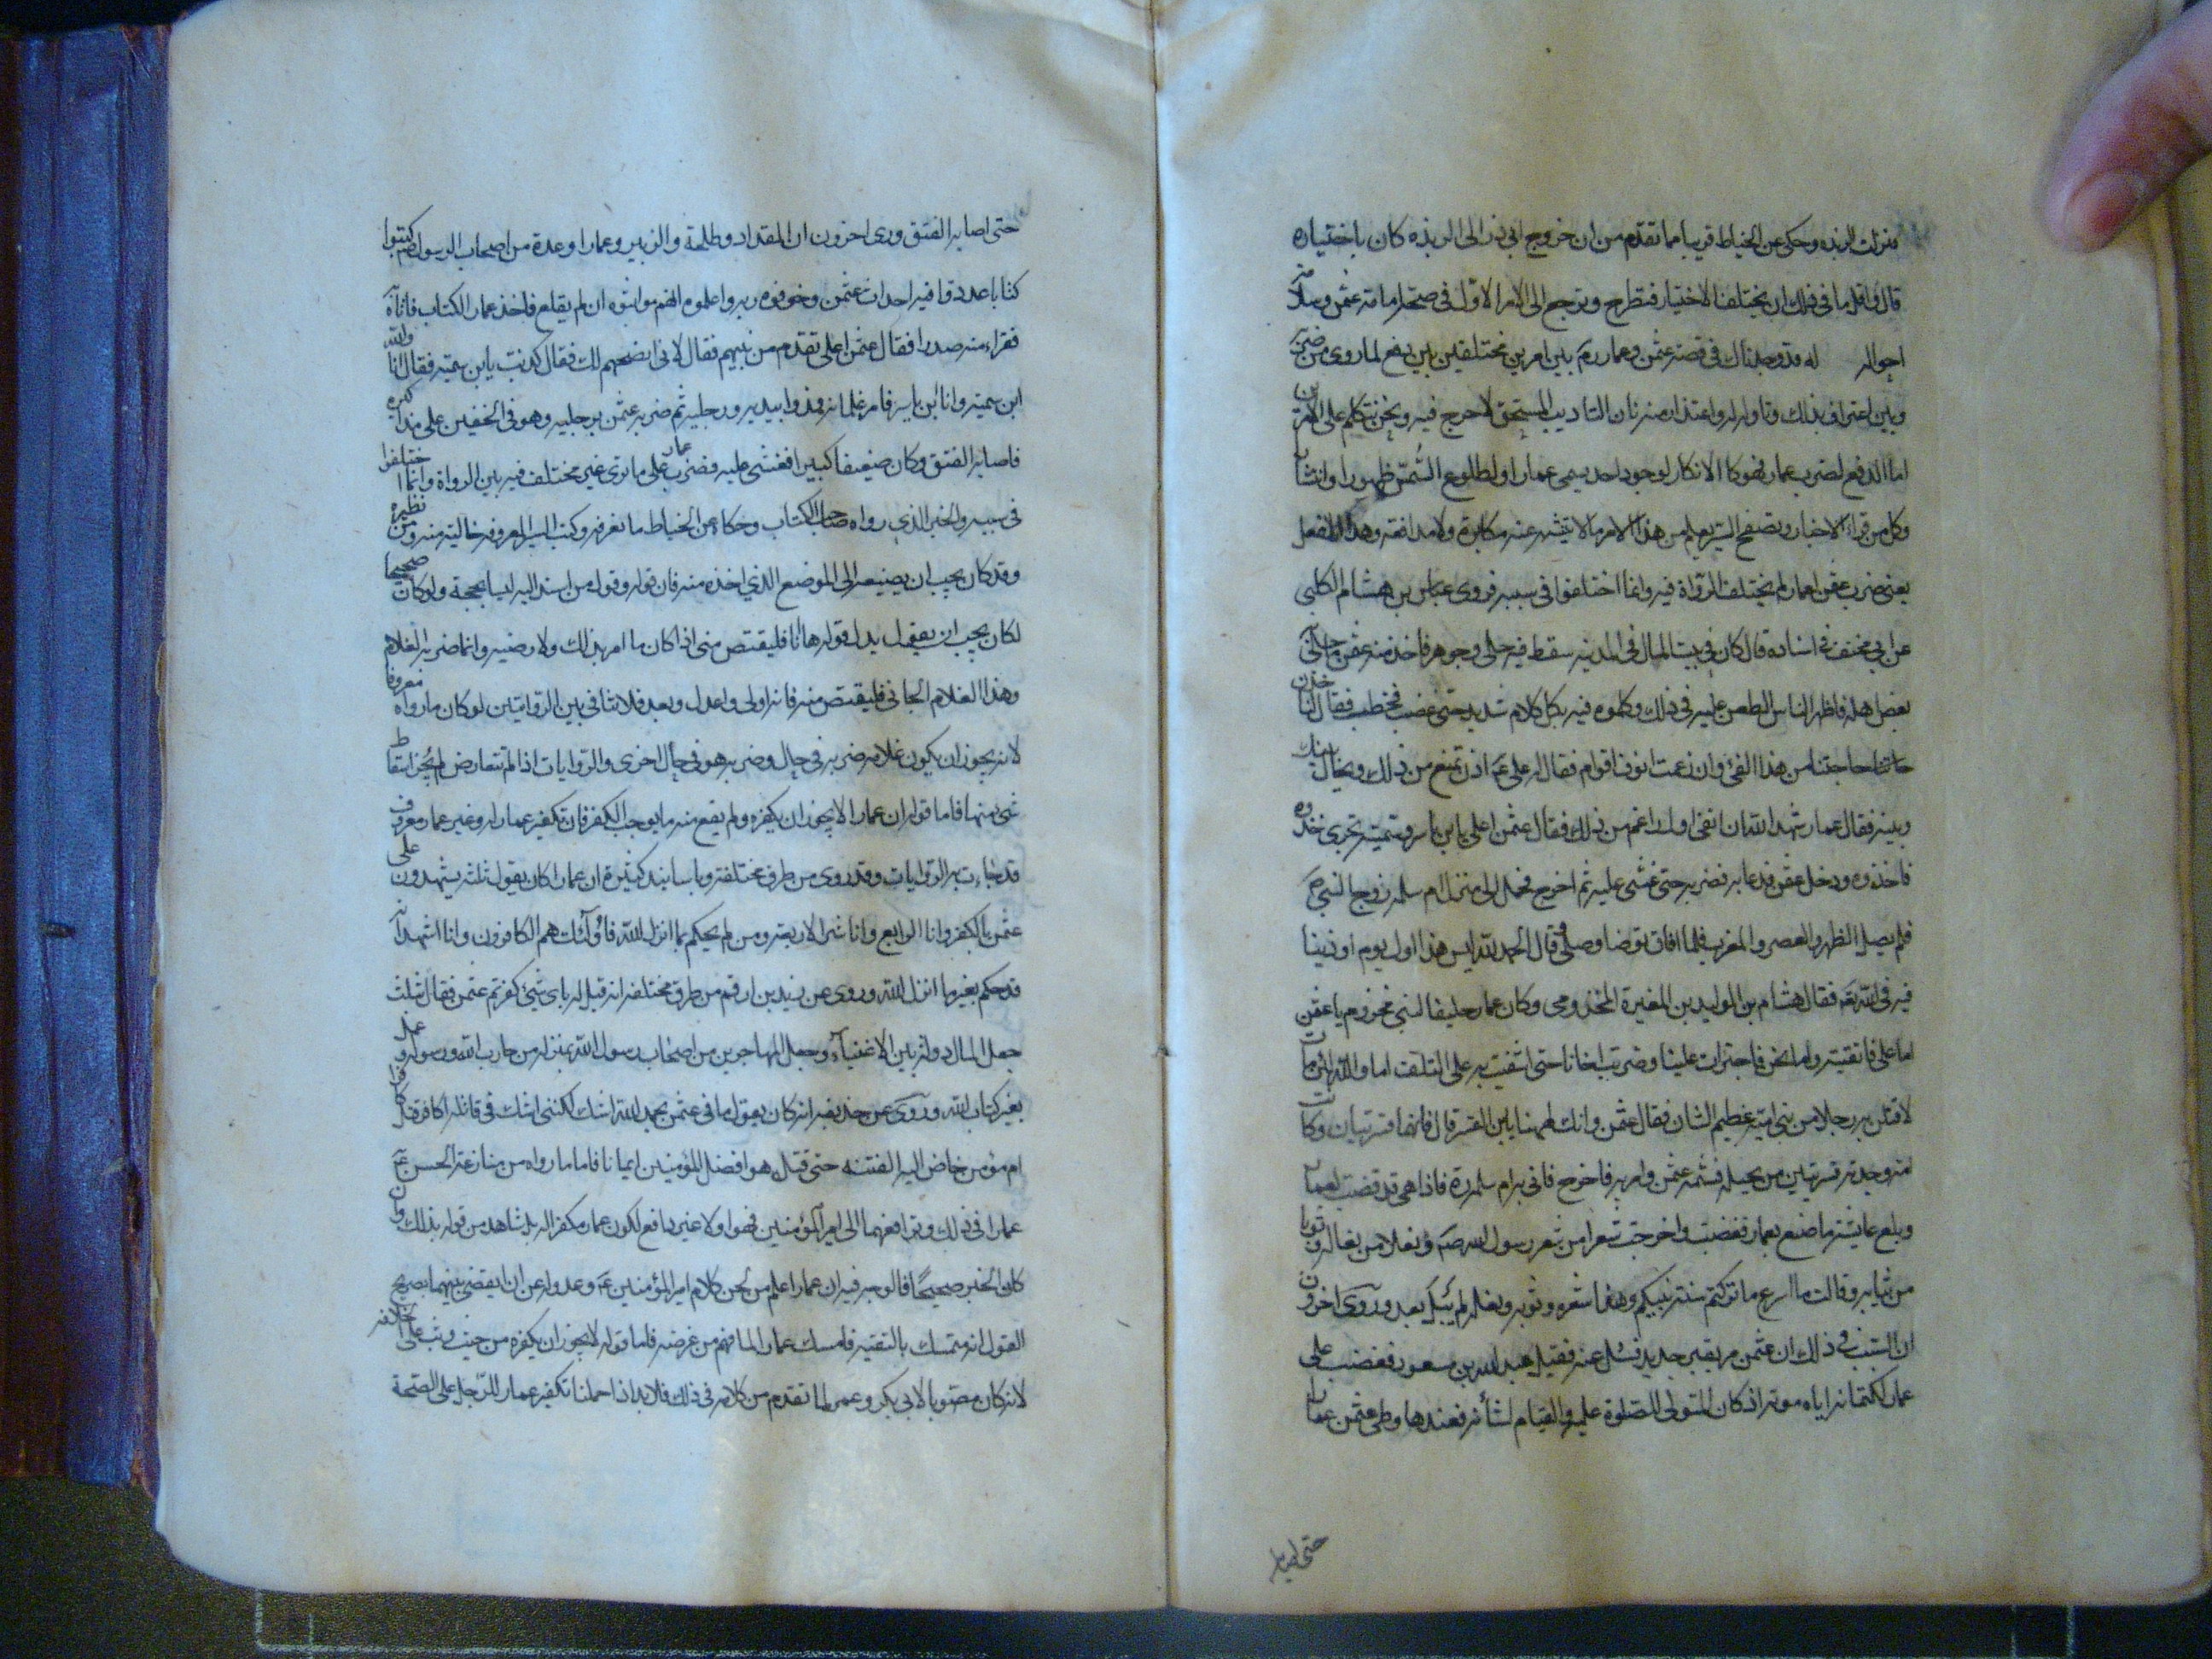 فنزلت الربذه وحكى عن الخياط قريبا مما تقدم من ان خروج ابي ذر الى الربذه كان باختياره
قال واقل ما في ذلك ان يختلف الاختيار فتطرح ونرجع الى الامر الاول في صحة امامة عثمن وسلامة
احواله له قد وجدناك في قصة عثمن وعمار بين امرين مختلفين بين دفع لما روي من ضربه
وبين اعتراف بذلك وتاول له واعتذار منه بان التاديب المستحق لا حرج فيه ونحن نتكلم على الامرين
اما الدفع لضرب عمار فهو كالانكار لوجود احد يسمى عمارا ولطلوع الشمس ظهورا وانتشارا
وكل من قراء الاخبار وتصفح السير يعلم من هذا الامر ما لا تثنيه عنه مكابرة ولا مدافعة وهذا الفعل
يعني ضرب عثمن لعمار لم يختلف الرواة فيه وانما اختلفوا في سببه فروى عباس بن هشام الكلبي
عن ابي مخنف في اسناده قال كان في بيت المال في المدينه سفط فيه حلى وجوهر فاخذ منه عثمن ما حلى به
بعض اهله فاظهر الناس الطعن عليه في ذلك وكلموه فيه بكل كلام شديد حتى غضب فخطب فقال لناخذن
حاجتنا من هذا الفئ وان زعمت انوف اقوام فقال له علي اذن تمنع من ذلك ويحال بينك
وبينه فقال عمار شهد الله ان انفي اول راغم من ذلك فقال عثمن اعلي يا بن ياسر وسمية تجري خذوه
فاخذوه ودخل عثمن فدعا به فضربه حتى غشى عليه ثم اخرج فحمل الى منزل ام سلمه زوج النبي
فلم يصل الظهر والعصر والمغرب فلما افاق توضا وصلى وقال الحمد لله ليس هذا اول يوم اوذينا
فيه في الله فقال هشام بن الوليد بن المغيرة المخزومي وكان عمار حليفا لبني مخزوم يا عثمن
اما علي فاتقيته واما نحن فاجترات علينا وضربت اخانا حتى اشفيت به على التلف اما والله لئن مات
لاقتلن به رجلا من بني امية عظيم الشان فقال عثمن وانك لههنا يابن القسرية قال فانهما قسريتان وكانت
امه وجدته قسريتين من بجيلة فشتمه عثمن وامر به فاخرج فاتي به ام سلمة فاذا هي قد غضبت لعمار
وبلغ عايشة ما صنع بعمار فغضبت واخرجت شعرا من شعر رسول الله ونعلا من نعاله وثوبا
من ثيابه وقالت ما اسرع ما تركتم سنة نبيكم وهذا شعره وثوبه ونعله لم يبل بعد وروى اخرون
ان السبب في ذلك ان عثمن مر بقبر جديد فسئل عنه فقيل عبد الله بن مسعود فغضب على
عمار لكتمانه اياه موته اذ كان المتولى للصلوة عليه والقيام لشأنه فعندها وطى عثمن عمارا
حتى اصابه
حتى اصابه الفتق وروى اخرون ان المقداد وطلحة والزبير وعمارا وعدة من اصحاب الرسول كتبوا
كتابا عددوا فيه احداث عثمن وخوفوه ربه واعلموه انهم مواثبوه ان لم يقلع فاخذ عمار الكتاب فاتاه به
فقراء منه صدرا فقال عثمن اعلي تقدم من بينهم فقال لاني انصحهم لك فقال كذبت يا بن سمية فقال انا والله
ابن سمية وانا ابن ياسر فامر غلمانه فمدوا بيديه ورجليه ثم ضربه عثمن برجليه وهو في الخفين على مذاكيره
فاصابه الفتق وكان ضعيفا كبيرا فغشي عليه فضرب عمار على ما ترى غير مختلف فيه بين الرواة وانما اختلفوا
في سببه والخبر الذي رواه صاحب الكتاب وحكاه عن الخياط ما نعرفه وكتب السير المعروفة خالية منه ومن نظيره
وقد كان يجب ان يضيفه الى الموضع الذي اخذه منه فان قوله وقول من اسند اليه ليسا بحجة ولو كان صحيحا
لكان يجب ان يقول بدل قوله ها انا فليقتص مني اذا كان ما امر بذلك ولا رضيه وانما ضربه الغلام
وهذا الغلام الجاني فليقتص منه فانه اولى واعدل وبعد فلا تنافي بين الروايتين لو كان ما رواه معروفا
لانه يجوز ان يكون غلامه ضربه في حال وضربه هو في حال اخرى والروايات اذا لم تتعارض لم يجز اسقاط
شيء منها فاما قوله ان عمارا لا يجوز ان يكفره ولم يقع منه ما يوجب الكفر فان تكفير عمار له وغير عمار معروف
قد جاءت به الروايات وقد روى من طرق مختلفة وباسانيد كثيرة ان عمارا كان يقول ثلثة يشهدون على
عثمن بالكفر وانا الرابع وانا شر الاربعة ومن لم يحكم بما انزل الله فاولئك هم الكافرون وانا اشهد انه
قد حكم بغير ما انزل الله وروى عن زيد بن ارقم من طرق مختلفه انه قيل له باي شئ كفرتم عثمن فقال بثلث
جعل المال دولة بين الاغنياء وجعل المهاجرين من اصحاب رسول الله بمنزلة من حارب الله ورسوله وعمل
بغير كتاب الله وروى عن حذيفه انه كان يقول ما في عثمن بحمد الله اشك لكنني اشك في قاتله اكافر قتل كافرا
ام مؤمن خاض اليه الفتنه حتى قتله هو افضل المؤمنين ايمانا فاما ما رواه من منازعة الحسن
عمارا في ذلك وترافعهما الى امير المؤمنين فهو اولا غير دافع لكون عمار مكفرا له بل شاهد من قوله بذلك وان
كان الخبر صحيحا فالوجه فيه ان عمارا علم من لحن كلام امير المؤمنين وعدوله عن ان يقضى بينهما بصريح
القول انه متمسك بالتقيه فامسك عمار لما فهم من غرضه فاما قوله لا يجوز ان يكفره من حيث وثب على الخلافه
لانه كان مصوبا لابي بكر وعمر لما تقدم من كلامه في ذلك فلا بد اذا حملنا تكفير عمار للرجل على الصحة